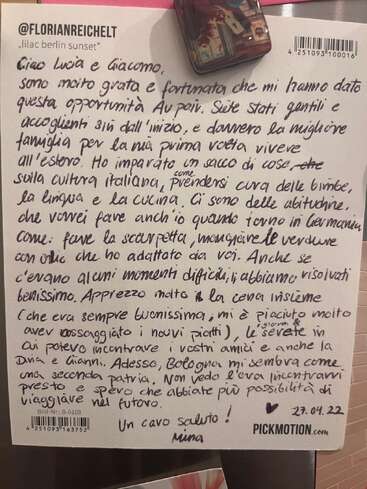 @FLORIANREICHELT
„lilac berlin sunset"
4251093100016
Ciao Lucia e Giacomo,
sono molto grata e fortunata che mi hanno dato
questa opportunità Au pair. Siete stati gentili e
accoglienti sin dall'inizio, e davvero la migliore
famiglia per la mia prima volta vivere
all'estero. Ho imparato un sacco di cose, che
sulla cultura italiana, come prendersi cura delle bimbe,
la lingua e la cucina. Ci sono delle abitudine,
che vorrei fare anch'io quando torno in Germania
come: fare la scarpetta, mangiare le verdure
con olio che ho adattato da voi. Anche se
c'erano alcuni momenti difficili, li abbiamo risolvati
benissimo. Apprezzo molto la cena insieme
(che era sempre buonissima, mi è piaciuto molto
aver assaggiato i nuovi piatti), i giorni e le serete in
cui potevo incontrare i vostri amici e anche la
e Gianni. Adesso, Bologna mi sembra come
una seconda patria. Non vedo l'ora incontrarvi
presto e spero che abbiate più possibilità di
viaggiare nel futuro.
27.04.22
Un caro saluto!
Mina
4251093163752
PICKMOTION.com